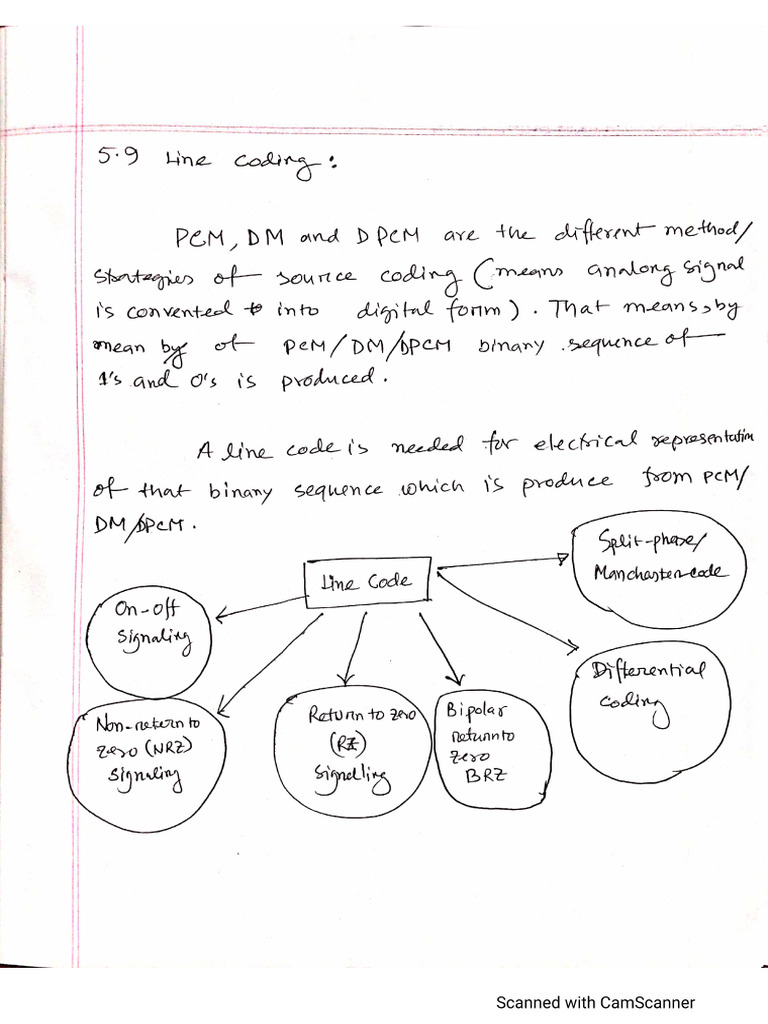 5.9 Line coding:
PCM, DM and DPCM are the different method/
strategies of source coding (means analong signal
is convented to into digital form). That means, by
mean by of PCM/DM/DPCM binary sequence of
1's and 0's is produced.
A line code is needed for electrical representation
of that binary sequence which is produce from PCM/
DM/DPCM.
Line Code
Split-phase/
Manchaster code
On-off
Signaling
Differential
coding
Non-return to
zero (NRZ)
signaling
Return to zero
(RZ)
signalling
Bipolar
return to
zero
BRZ
Scanned with CamScanner